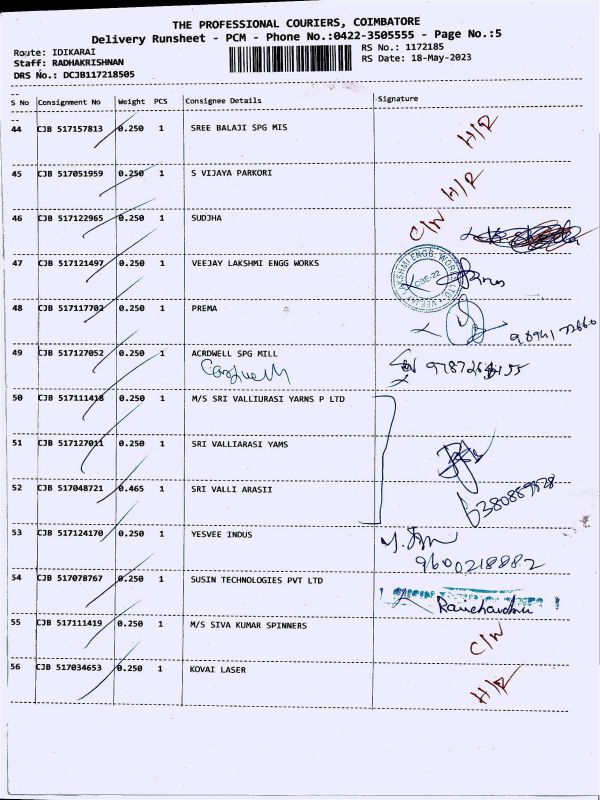 THE PROFESSIONAL COURIERS, COIMBATORE
Delivery Runsheet - PCM - Phone No.:0422-3505555 - Page No.:5
Route: IDIKARAI
RS No.: 1172185
Staff: RADHAKRISHNAN
RS Date: 18-May-2023
DRS No.: DCJB117218505
S No Consignment No Weight PCS Consignee Details Signature
44 CJB 517157813 0.250 1 SREE BALAJI SPG MIS H/R
45 CJB 517051959 0.250 1 S VIJAYA PARKORI H/R
46 CJB 517122965 0.250 1 SUDJHA C/N
47 CJB 517121497 0.250 1 VEEJAY LAKSHMI ENGG WORKS
48 CJB 517117702 0.250 1 PREMA
49 CJB 517127052 0.250 1 ACRDWELL SPG MILL
50 CJB 517111418 0.250 1 M/S SRI VALLIURASI YARNS P LTD
51 CJB 517127011 0.250 1 SRI VALLIARASI YAMS
52 CJB 517048721 0.465 1 SRI VALLI ARASII
6380889528
53 CJB 517124170 0.250 1 YESVEE INDUS
9600218882
54 CJB 517078767 0.250 1 SUSIN TECHNOLOGIES PVT LTD
55 CJB 517111419 0.250 1 M/S SIVA KUMAR SPINNERS C/N
56 CJB 517034653 0.250 1 KOVAI LASER H/R